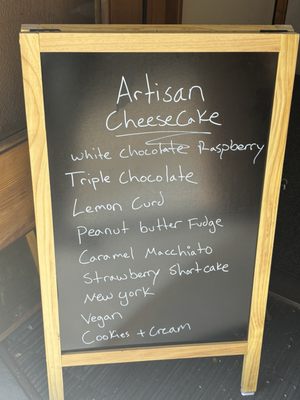 Artisan
CheeseCake
White Chocolate Raspberry
Triple Chocolate
Lemon Curd
Peanut butter Fudge
Caramel Macchiato
Strawberry Shortcake
New york
Vegan
Cookies + Cream